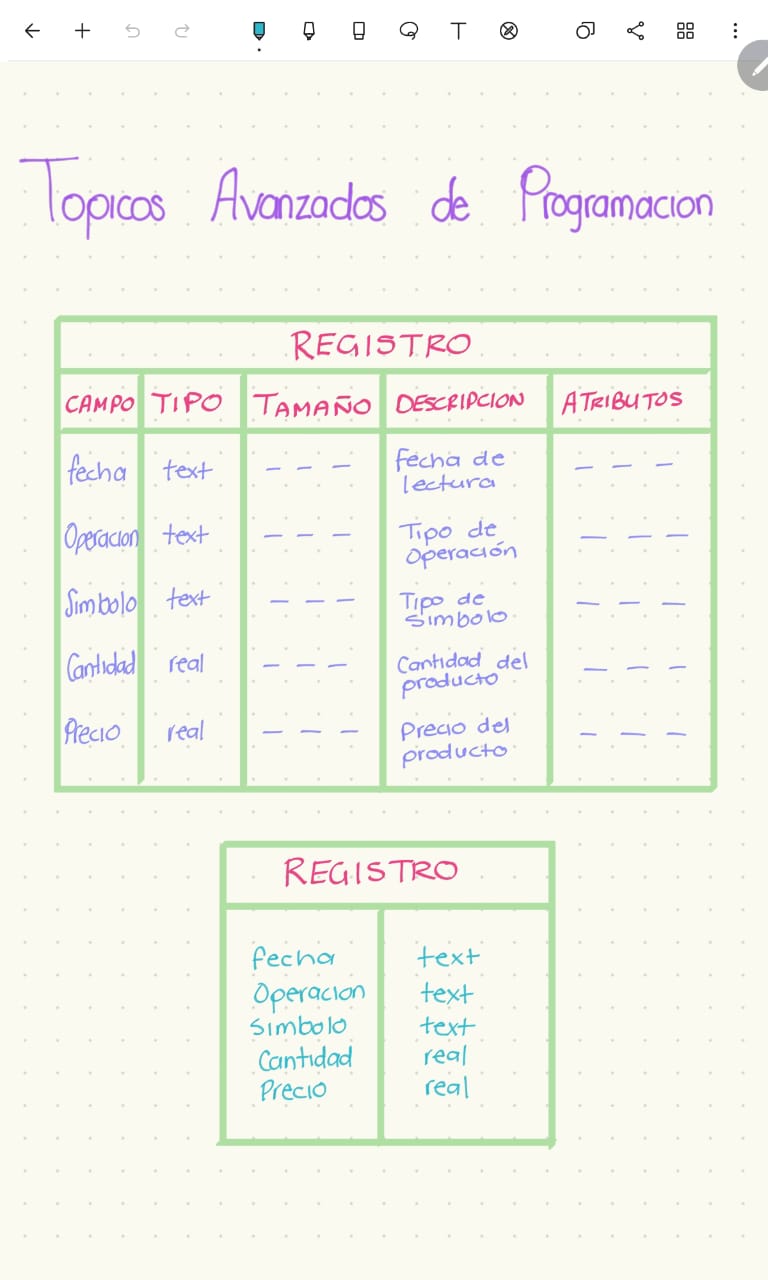 Topicos Avanzados de Programacion
REGISTRO
CAMPO TIPO TAMAÑO DESCRIPCION ATRIBUTOS
fecha text - - - fecha de lectura - - -
Operacion text - - - Tipo de Operación - - -
Simbolo text - - - Tipo de simbolo - - -
Cantidad real - - - Cantidad del producto - - -
Precio real - - - Precio del producto - - -
REGISTRO
fecha text
Operacion text
simbolo text
Cantidad real
Precio real